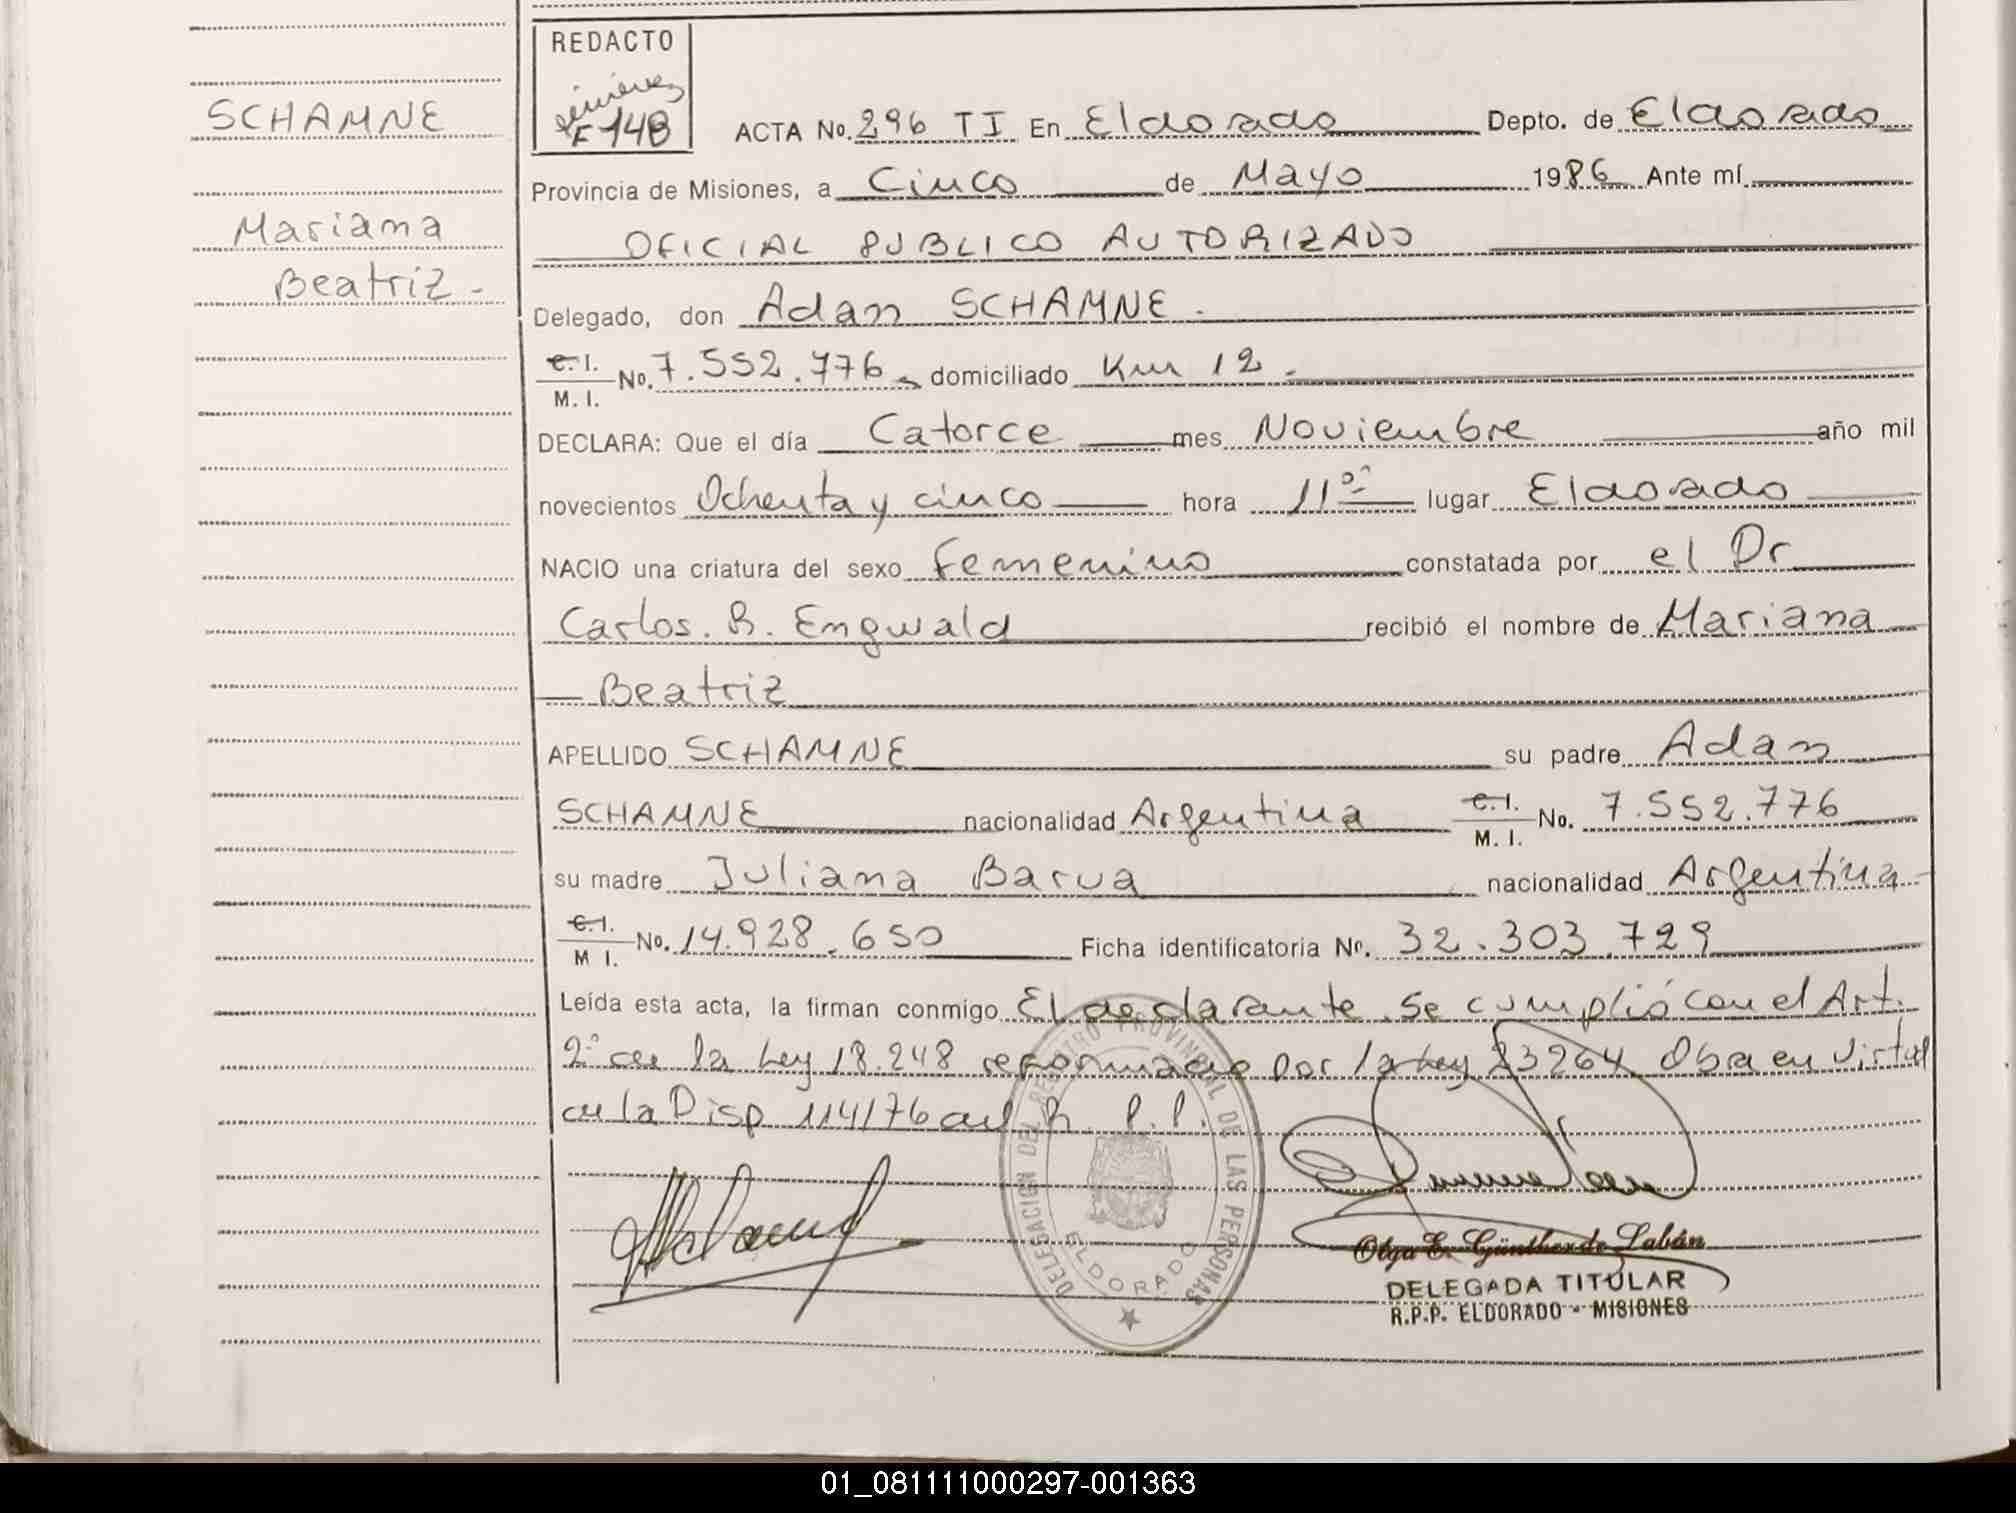 SCHAMNE
Mariana
Beatriz -
REDACTO
F 148
ACTA No. 296 TI En Eldorado Depto. de Eldorado
Provincia de Misiones, a Cinco de Mayo 1986 Ante mí
OFICIAL PUBLICO AUTORIZADO
Delegado, don Adan SCHAMNE.
C. I. M. I. No. 7.552.776 domiciliado Km 12.
DECLARA: Que el día Catorce mes Noviembre año mil
novecientos Ochenta y cinco hora 11 lugar Eldorado
NACIO una criatura del sexo Femenino constatada por el Dr
Carlos. R. Engwald recibió el nombre de Mariana
Beatriz
APELLIDO SCHAMNE su padre Adan
SCHAMNE nacionalidad Argentina C. I. M. I. No. 7.552.776
su madre Juliana Barua nacionalidad Argentina
C. I. M I. No. 14.928.650 Ficha identificatoria No. 32.303.729
Leída esta acta, la firman conmigo El declarante. Se cumplió con el Art.
2º de la Ley 18.248 reformado por la Ley 23264 Obra en virtud
de la Disp 114/76 del R. P. P.
DELEGACION DEL REGISTRO PROVINCIAL DE LAS PERSONAS
ELDORADO
Olga E. Günther de Labán
DELEGADA TITULAR
R.P.P. ELDORADO - MISIONES
01_081111000297-001363